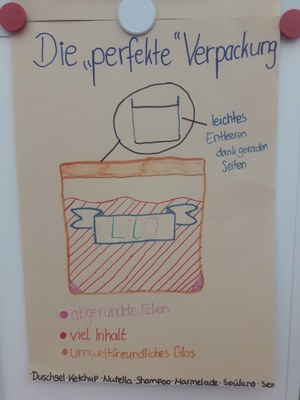 Die „perfekte“ Verpackung
leichtes
Entleeren
dank geraden
Seiten
LiLO
abgerundte Ecken
viel Inhalt
umweltfreundliches Glas
Duschgel · Ketchup · Nutella · Shampoo · Marmelade · Spülung